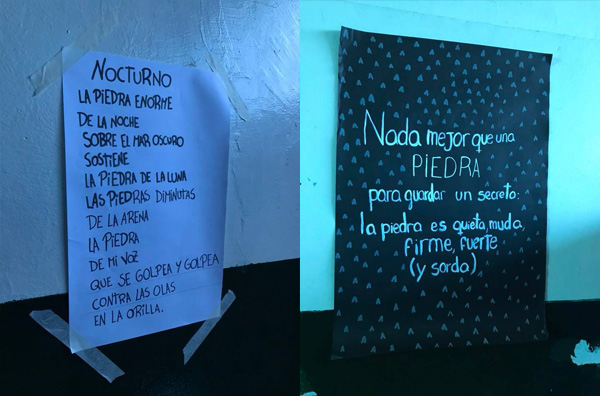 NOCTURNO
LA PIEDRA ENORME
DE LA NOCHE
SOBRE EL MAR OSCURO
SOSTIENE
LA PIEDRA DE LA LUNA
LAS PIEDRAS DIMINUTAS
DE LA ARENA
LA PIEDRA
DE MI VOZ
QUE SE GOLPEA Y GOLPEA
CONTRA LAS OLAS
EN LA ORILLA.
Nada mejor que una
PIEDRA
para guardar un secreto:
la piedra es quieta, muda,
firme, fuerte
(y sorda)